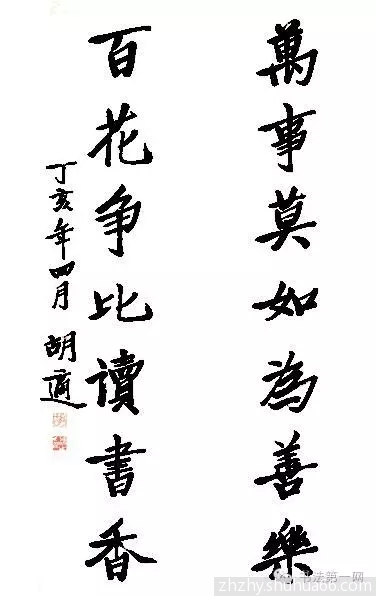 萬事莫如為善樂
百花争比讀書香
丁亥年四月 胡適
书法第一网
zhzhy.shuhua66.com